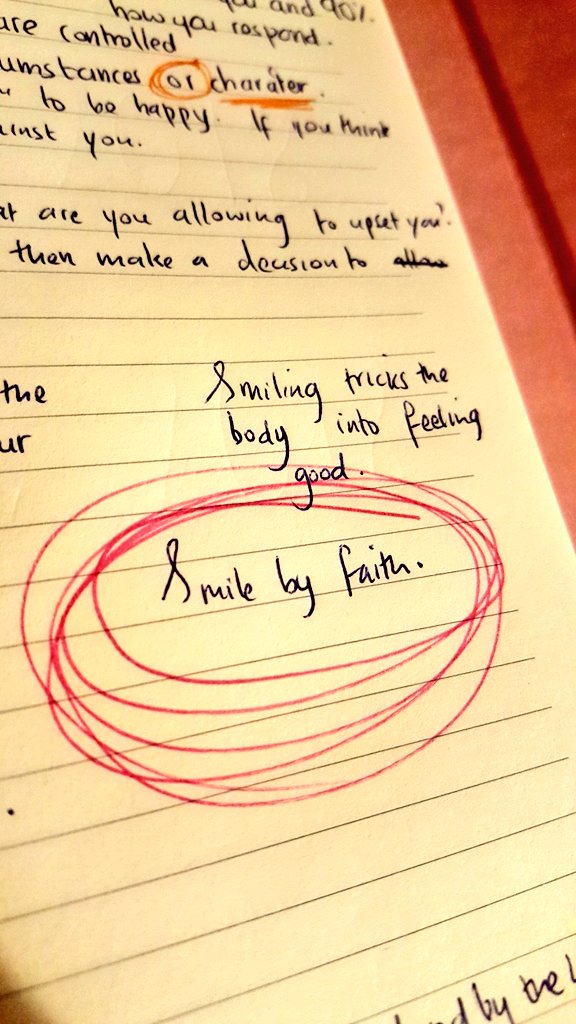 you and 90%.
how you respond.
are controlled
umstances or charater.
to be happy. If you think
ainst you.
at are you allowing to upset you?
then make a decision to allow
the
Smiling tricks the
ur
body into feeling
good.
Smile by faith.
by the